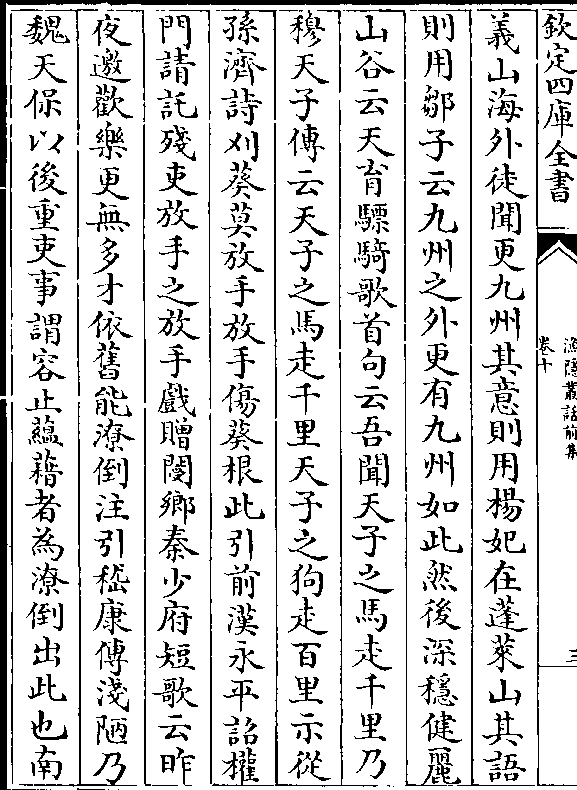 欽定四庫全書
漁隱叢話前集
卷十
三
義山海外徒聞更九州其意則用楊妃在蓬萊山其語
則用鄒子云九州之外更有九州如此然後深穩健麗
山谷云天育驃騎歌首句云吾聞天子之馬走千里乃
穆天子傳云天子之馬走千里天子之狗走百里示從
孫濟詩刈葵莫放手放手傷葵根此引前漢永平詔權
門請託殘吏放手之放手戲贈閿鄉秦少府短歌云昨
夜邀歡樂更無多才依舊能潦倒注引嵇康傳淺陋乃
魏天保以後重吏事謂容止蘊藉者為潦倒出此也南